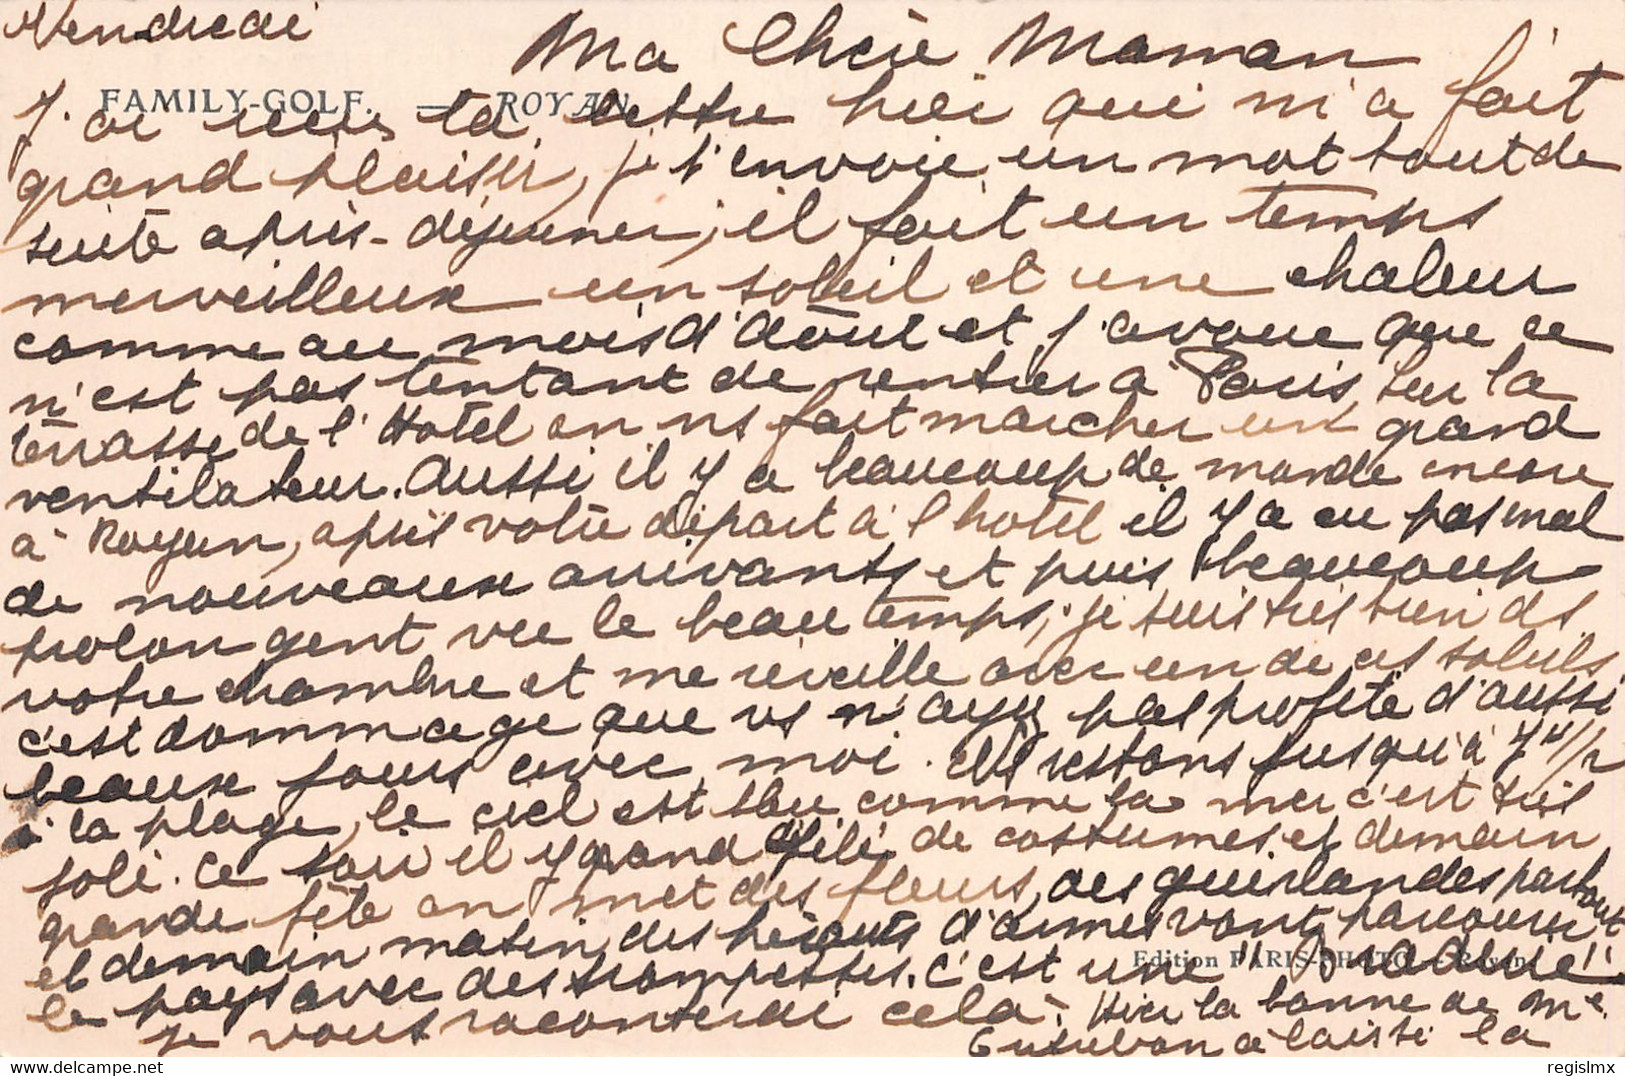 Vendredi
Ma Chère Maman
FAMILY-GOLF. — ROYAN
J'ai reçu ta lettre hier qui m'a fait
grand plaisir, je t'envoie un mot tout de
suite après-déjeuner, il fait un temps
merveilleux un soleil et une chaleur
comme au mois d'août et j'avoue que ce
n'est pas tentant de rentrer à Paris, sur la
terrasse de l'Hotel on ns fait marcher un grand
ventilateur. Aussi il y a beaucoup de monde encore
à Royan, après votre départ à l'hotel il y a eu pas mal
de nouveaux arrivants et puis beaucoup
prolongent vu le beau temps; je suis très bien ds
votre chambre et me réveille avec un de ces soleils,
c'est dommage que vs n'ayez pas profité d'aussi
beaux jours avec moi. Ns restons jusqu'à 7h 1/2
à la plage, le ciel est bleu comme la mer c'est très
joli. Ce soir il y grand défilé de costumes et demain
grande fête on met des fleurs, des guirlandes partout
et demain matin des hérauts d'armes vont parcourir
le pays avec des trompettes. C'est une
Edition PARIS-PHOTO — Royan
je vous raconterai cela. Hier la bonne de Me.
a laissé la
regislmx